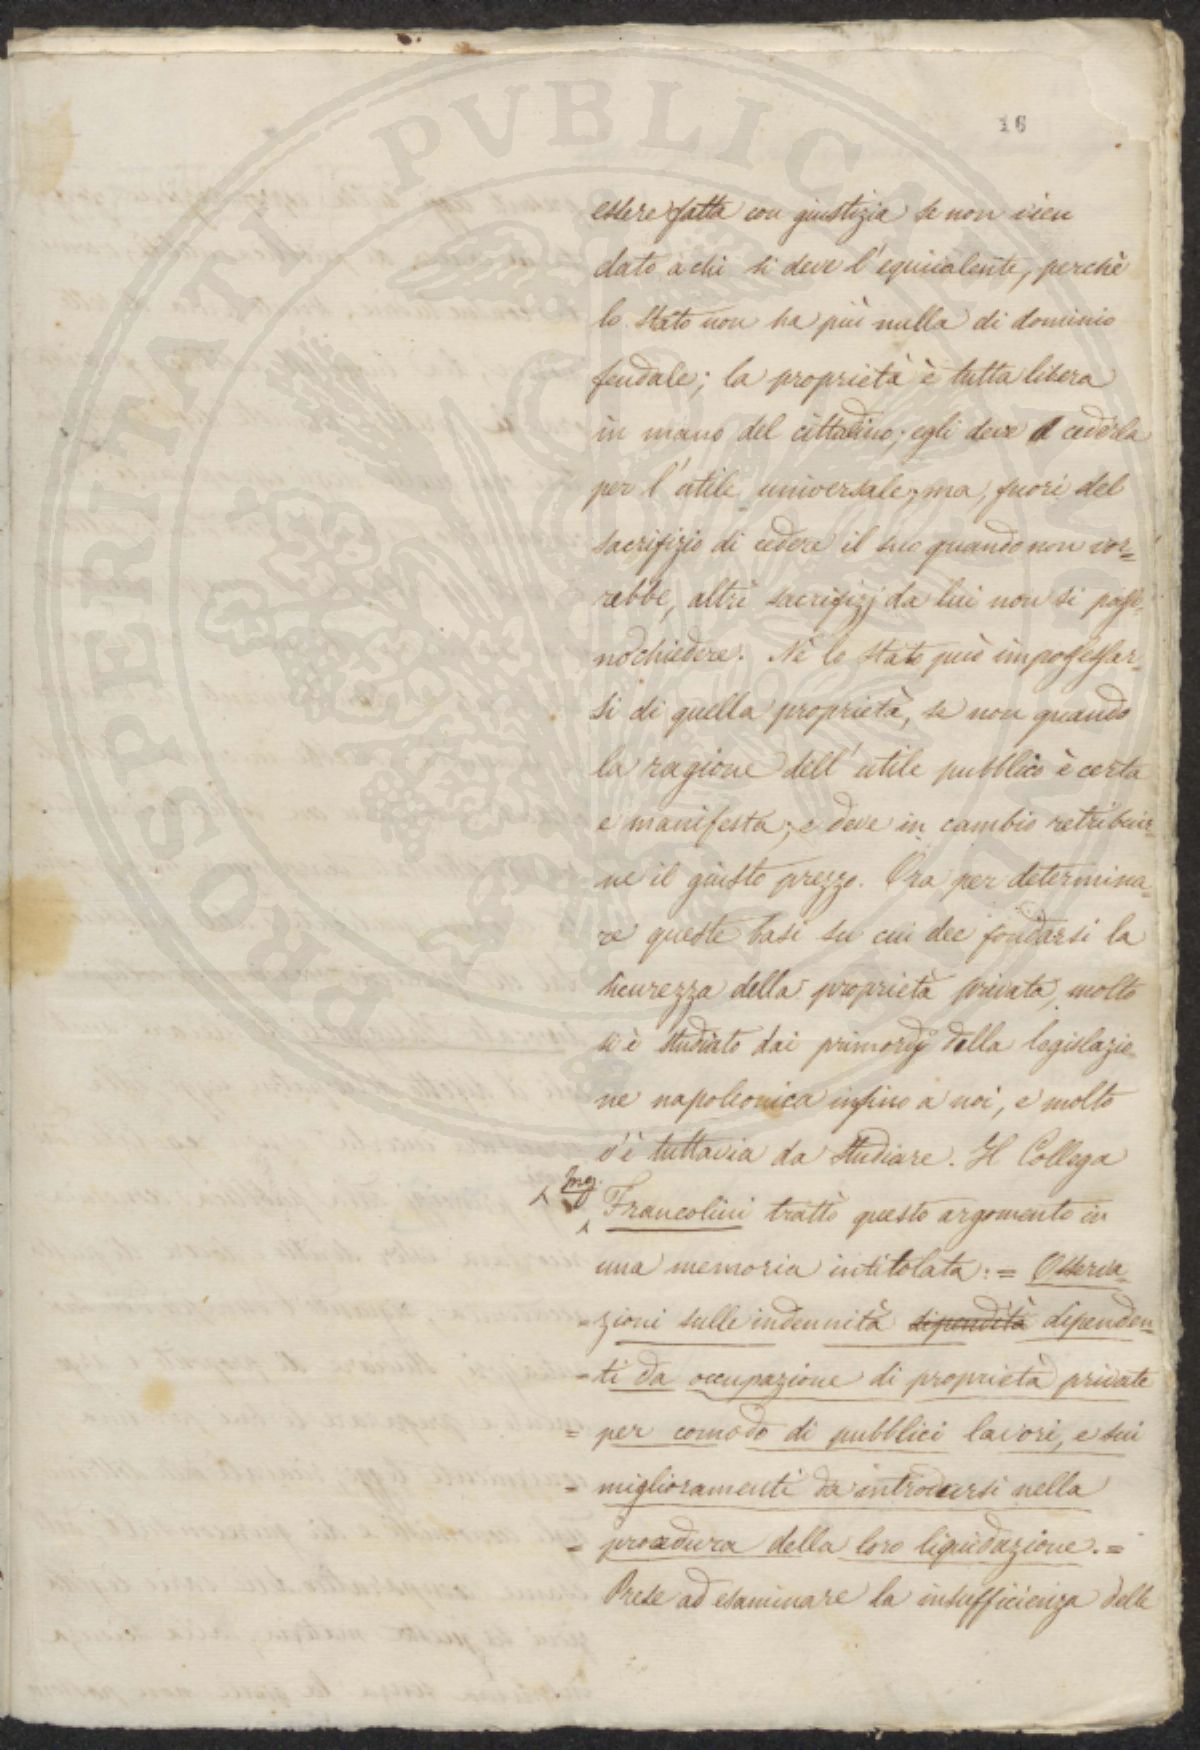 PROSPERITATI PVBLICAE AVGENDAE
16
essere fatta con giustizia se non vien
dato a chi si deve l'equivalente, perchè
lo Stato non ha più nulla di dominio
feudale; la proprietà è tutta libera
in mano del cittadino; egli deve cederla
per l'utile universale; ma, fuori del
sacrifizio di cedere il suo quando non vor=
rebbe, altri sacrifizj da lui non si posso=
no chiedere. Nè lo Stato può impossessar=
si di quella proprietà, se non quando
la ragione dell'utile pubblico è certa
e manifesta; e deve in cambio retribuir=
ne il giusto prezzo. Ora per determina=
re queste basi su cui dee fondarsi la
sicurezza della proprietà privata, molto
si è studiato dai primordj della legislazio=
ne napoleonica infino a noi, e molto
v'è tuttavia da studiare. Il Collega
Ing.
Francolini trattò questo argomento in
una memoria intitolata: = Osserva=
= zioni sulle indennità dipendità dipenden=
= ti da occupazione di proprietà private
= per comodo di pubblici lavori, e sui
= miglioramenti da introdursi nella
= procedura della loro liquidazione. =
Prese ad esaminare la insufficienza delle